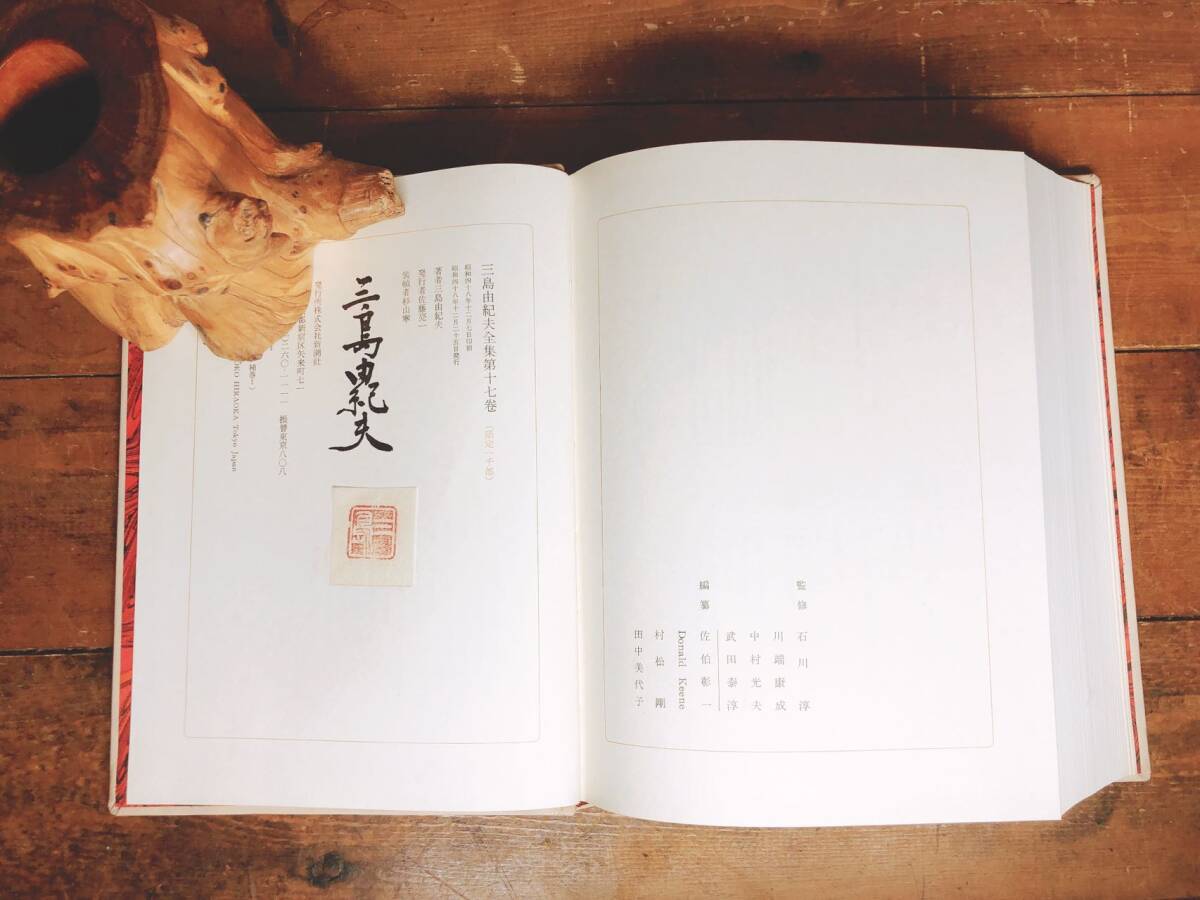 監修
石川淳
川端康成
中村光夫
武田泰淳
編纂
佐伯彰一
Donald Keene
村松剛
田中美代子
三島由紀夫全集第十七巻 (限定一千部)
昭和四十八年十二月七日印刷
昭和四十八年十二月二十五日発行
著者三島由紀夫
発行者佐藤亮一
装幀者杉山寧
三島由紀夫
発行所株式会社新潮社
都新宿区矢来町七一
三六〇・一一一一 振替東京八〇八
補巻1)
OKO HIRAOKA Tokyo Japan